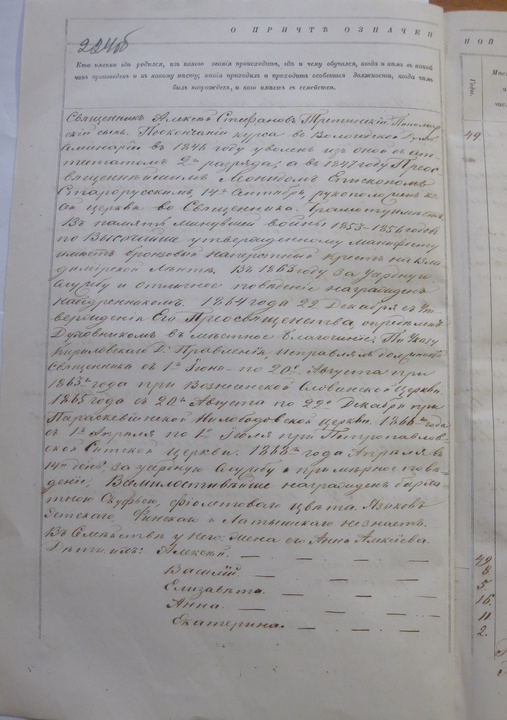 О ПРИЧТѢ ОЗНАЧЕН
НОЙ
224об
Кто имено гдѣ родился, изъ какого званія происходитъ, гдѣ и чему обучался, когда и кѣмъ въ какой
чинъ произведенъ и къ какому мѣсту; какія проходилъ и проходитъ особенныя должности, когда чѣмъ
былъ награжденъ, и кого имѣетъ въ семействѣ.
Годы.
Священникъ Алексѣй Стефановъ Третинскій Пономар
скій сынъ. По окончаніи курса въ Вологодской Духов
Семинаріи въ 1846 году уволенъ изъ оной съ ат-
тестатомъ 2го разряда; а въ 1847 году Преос
вященнѣйшимъ Леонидомъ Епископомъ
Старорусскимъ, 14го Сентября, рукоположенъ къ
сей церкви во Священника. Грамоту имѣетъ.
Въ память минувшей войны 1853-1856 годовъ
по Высочайше утвержденному манифесту
имѣетъ бронзовый наперстный крестъ на Вла
димірской лентѣ. Въ 1863 году за усердную
службу и отличное поведеніе награжденъ
набедренникомъ. 1864 года 22 Декабря съ Ут
вержденія Его Преосвященства, опредѣленъ
Духовникомъ въ мѣстное Благочиніе. По Указу
Кириловскаго Д: Правленія исправлялъ должность
Священника съ 1го Іюня по 20е Августа при
1863 года при Вознесенской Словинской Церкви
1865 года съ 20го Августа по 22е Декабря при
Параскевіинской Церкви. 1866го года
съ 1го Апрѣля по 1е Іюля при Петропавлов-
ской Ситской Церкви. 1868го года Апрѣля въ
14й день за усердную Службу и примѣрное пове
деніе, Всемилостивѣйше награжденъ бархат
тною Скуфьею, фіолетоваго цвѣта. Языковъ
Эстскаго Финскаго и Латышскаго незнаетъ.
Въ Семействѣ у него: жена его Анна Алексѣева
Дѣти ихъ: Алексѣй.
Василій.
Елизавета.
Анна.
Екатерина.
49
49
8.
5.
16.
11
2.